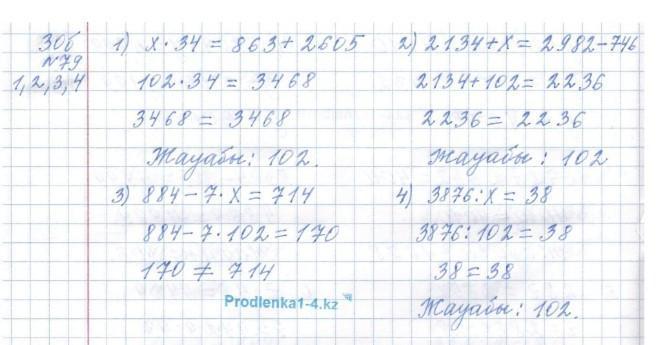 30б
№79
1,2,3,4
1) x · 34 = 863 + 2605
102 · 34 = 3468
3468 = 3468
Жауабы: 102.
2) 2134 + x = 2982 - 746
2134 + 102 = 2236
2236 = 2236
Жауабы: 102
3) 884 - 7 · x = 714
884 - 7 · 102 = 170
170 ≠ 714
4) 3876 : x = 38
3876 : 102 = 38
38 = 38
Жауабы: 102.
Prodlenka1-4.kz